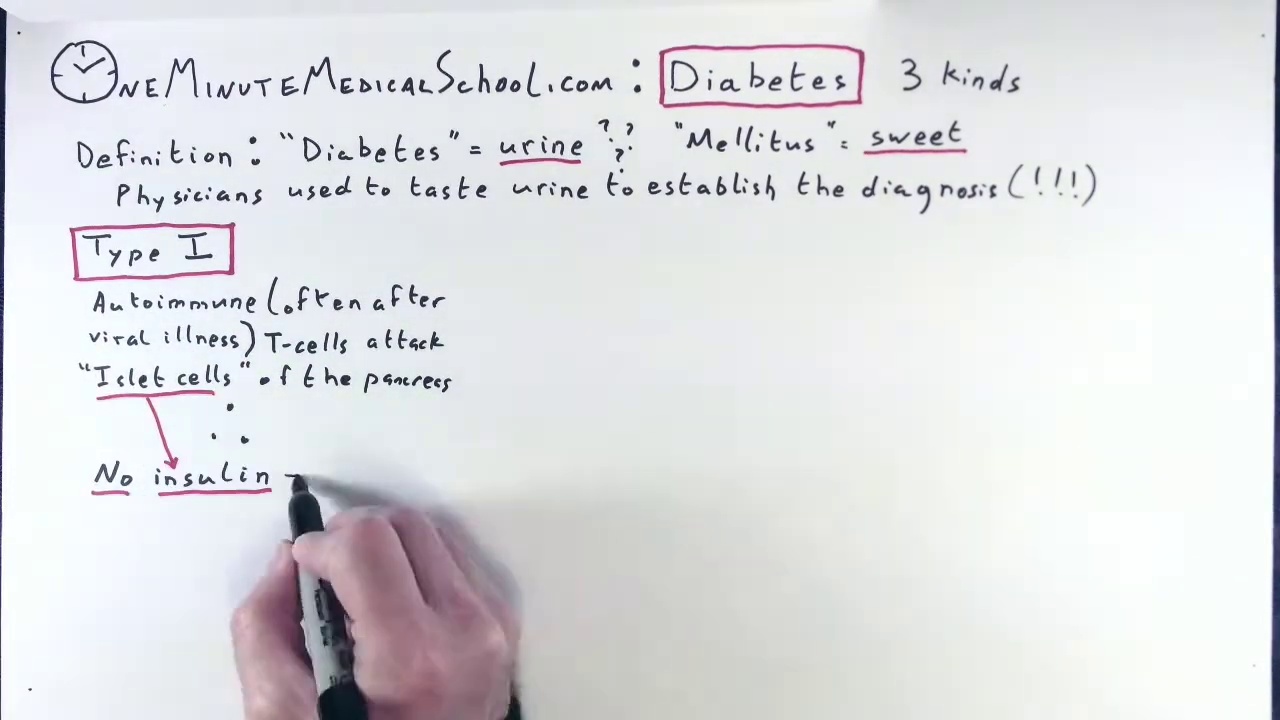 OneMinuteMedicalSchool.com : Diabetes 3 kinds
Definition : "Diabetes" = urine ??? "Mellitus" = sweet
Physicians used to taste urine to establish the diagnosis (!!!)
Type I
Autoimmune (often after
viral illness) T-cells attack
"Islet cells" of the pancreas
No insulin